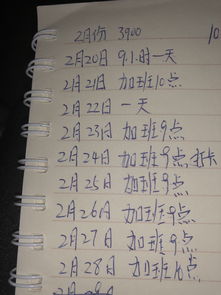 2月份 3900
10
2月20日 9.1.时一天
2月21日 加班10点
2月22日 一天
2月23日 加班9点
2月24日 加班9点 打卡
2月25日 加班9点
2月26日 加班9点
2月27日 加班9点
2月28日 加班10点